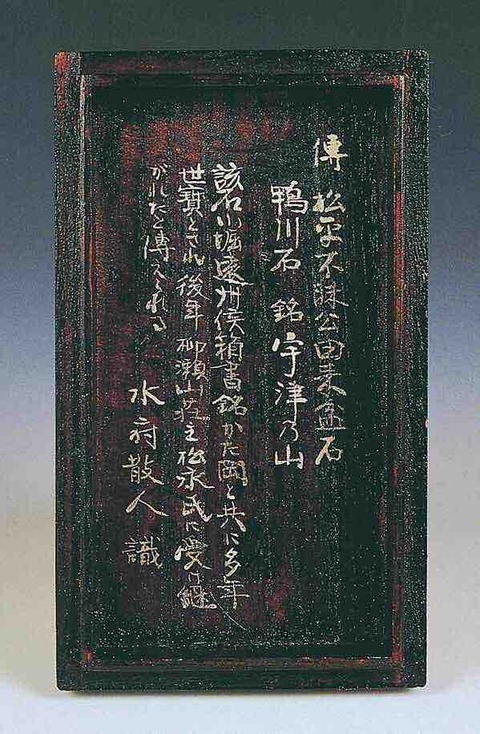 傳 松平不昧公由来盆石
鴨川石 銘 宇津乃山
該石小堀遠州侯箱書銘かた関と共に多年
世寶とされ 後年 柳瀬山荘主松永氏に受け継
がれたと傳えられる
水府散人 識